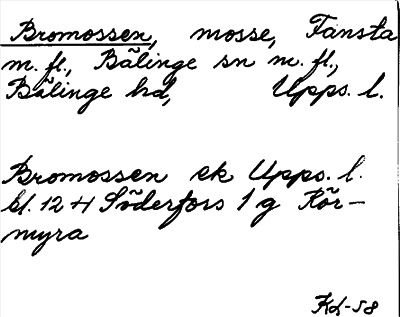 Bromossen, mosse, Fansta
m. fl., Bälinge sn m. fl.,
Bälinge hd, Upps. l.
Bromossen ek Upps. l.
bl. 12 H Söderfors 1 g Rör-
myra
KL-58